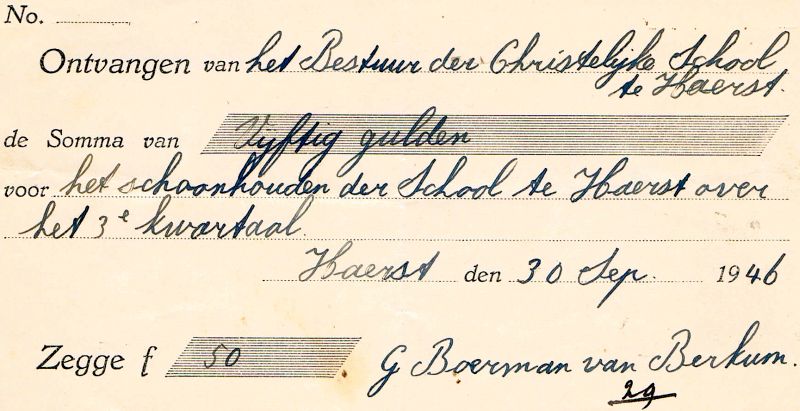 No.
Ontvangen van het Bestuur der Christelijke School
te Haerst.
de Somma van Vijftig gulden
voor het schoonhouden der School te Haerst over
het 3e kwartaal.
Haerst den 30 Sep. 1946
Zegge f 50 G Boerman van Berkum.
29